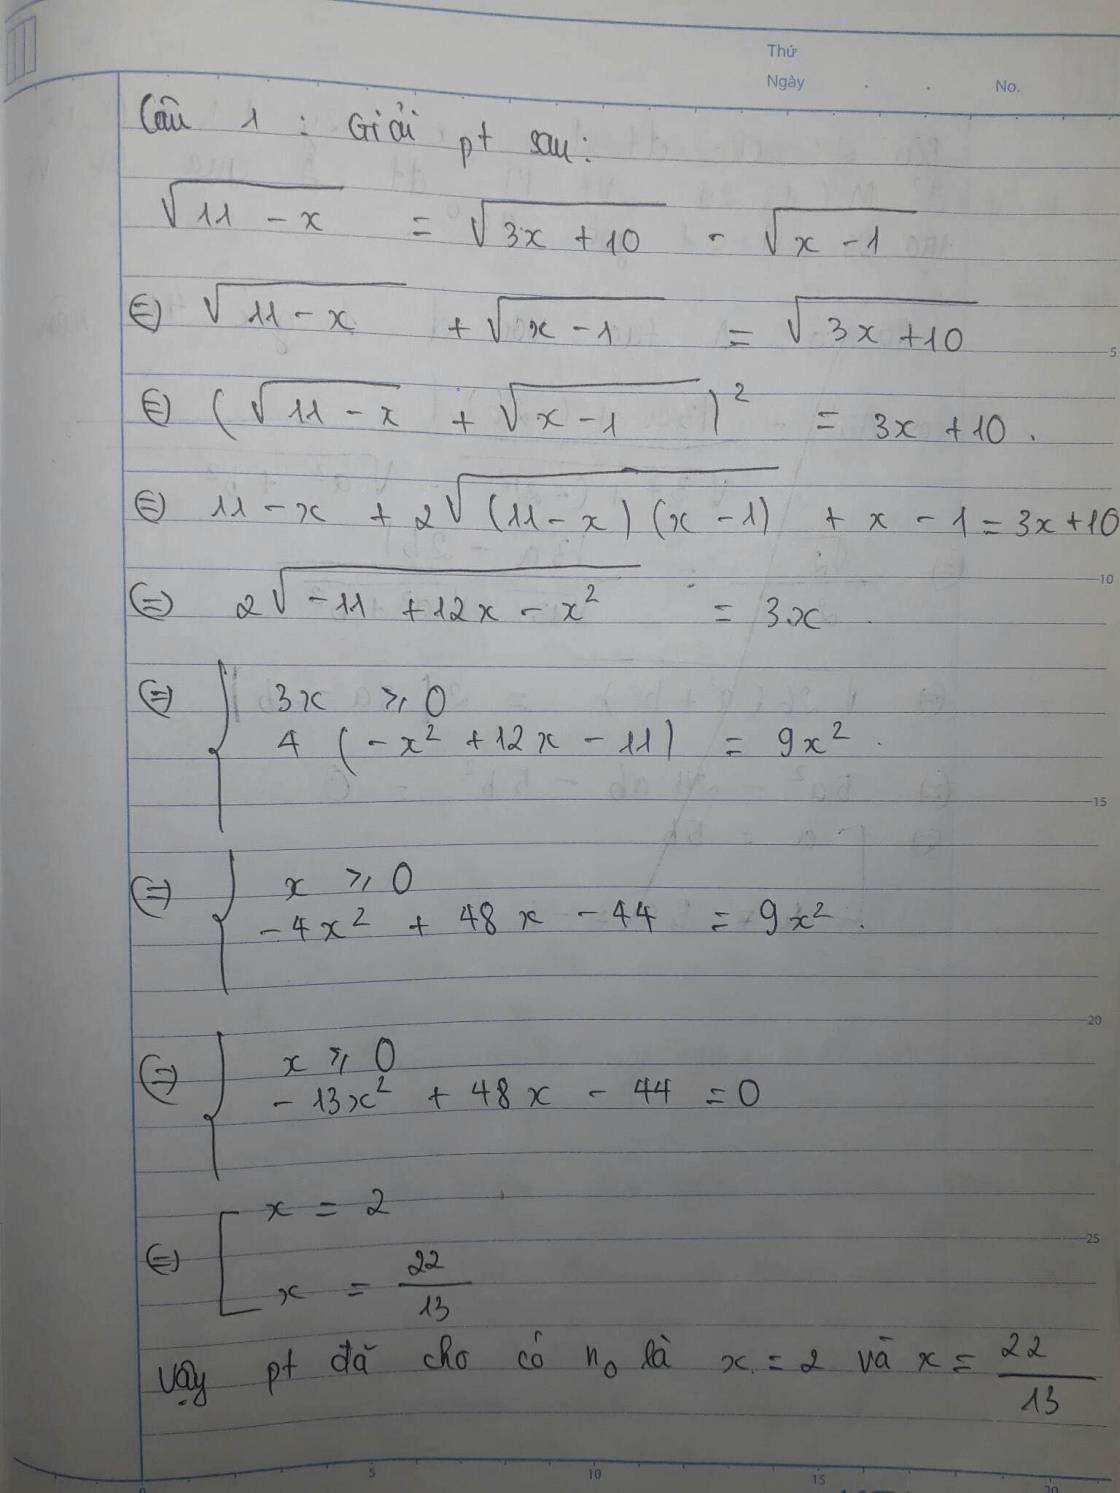 Thứ
Ngày . . No.
Câu 1 : Giải pt sau:
√(11 - x) = √(3x + 10) - √(x - 1)
⇔ √(11 - x) + √(x - 1) = √(3x + 10)
⇔ (√(11 - x) + √(x - 1))² = 3x + 10 .
⇔ 11 - x + 2√((11 - x)(x - 1)) + x - 1 = 3x + 10
⇔ 2√(-11 + 12x - x²) = 3x
⇔ { 3x ⩾ 0
4 (-x² + 12x - 11) = 9x² .
⇔ { x ⩾ 0
-4x² + 48x - 44 = 9x² .
⇔ { x ⩾ 0
-13x² + 48x - 44 = 0
⇔ [ x = 2
x = 22/13
Vậy pt đã cho có n₀ là x = 2 và x = 22/13
5
10
15
20
25
0 5 10 15 20